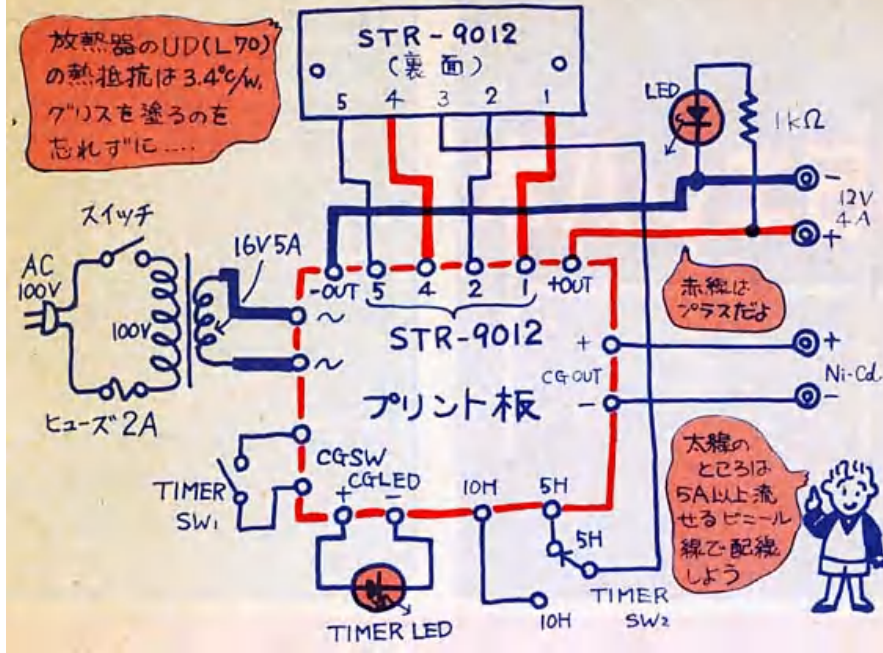 放熱器のUD(L70)
の熱抵抗は3.4℃/W,
グリスを塗るのを
忘れずに.....
STR-9012
(裏面)
5 4 3 2 1
LED
1kΩ
-
12V
4A
+
スイッチ
16V5A
AC
100V
100V
ヒューズ2A
-OUT 5 4 2 1 +OUT
STR-9012
プリント板
~
~
赤線は
プラスだよ
+
CG OUT
-
+
Ni-Cd.
-
TIMER
SW1
CGSW
CGLED
+ -
10H 5H
5H
10H
TIMER
SW2
TIMER LED
太線の
ところは
5A以上流
せるビニール
線で配線
しよう